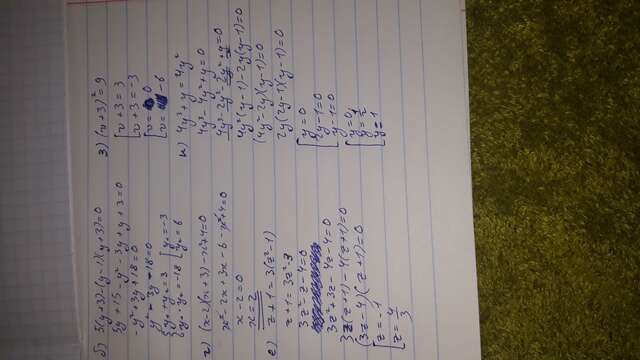 б) 5(y+3)-(y-1)(y+3)=0
5y+15-y²-3y+y+3=0
-y²+3y+18=0
y²-3y-18=0
{y₁+y₂=3
{y₁·y₂=-18 [y₁=-3
[y₂=6
г) (x-2)(x+3)-x²+4=0
x²-2x+3x-6-x²+4=0
x-2=0
x=2
е) z+1=3(z²-1)
z+1=3z²-3
3z²-z-4=0
3z²+3z-4z-4=0
3z(z+1)-4(z+1)=0
(3z-4)(z+1)=0
[z=-1
[z=4/3
з) (v+3)²=9
[v+3=3
[v+3=-3
[v=0
[v=-6
к) 4y³+y=4y²
4y³-4y²+y=0
4y³-2y²-2y²+y=0
4y²(y-1)-2y(y-1)=0
(4y²-2y)(y-1)=0
2y(2y-1)(y-1)=0
[y=0
[2y-1=0
[y-1=0
[y=0
[y=½
[y=1